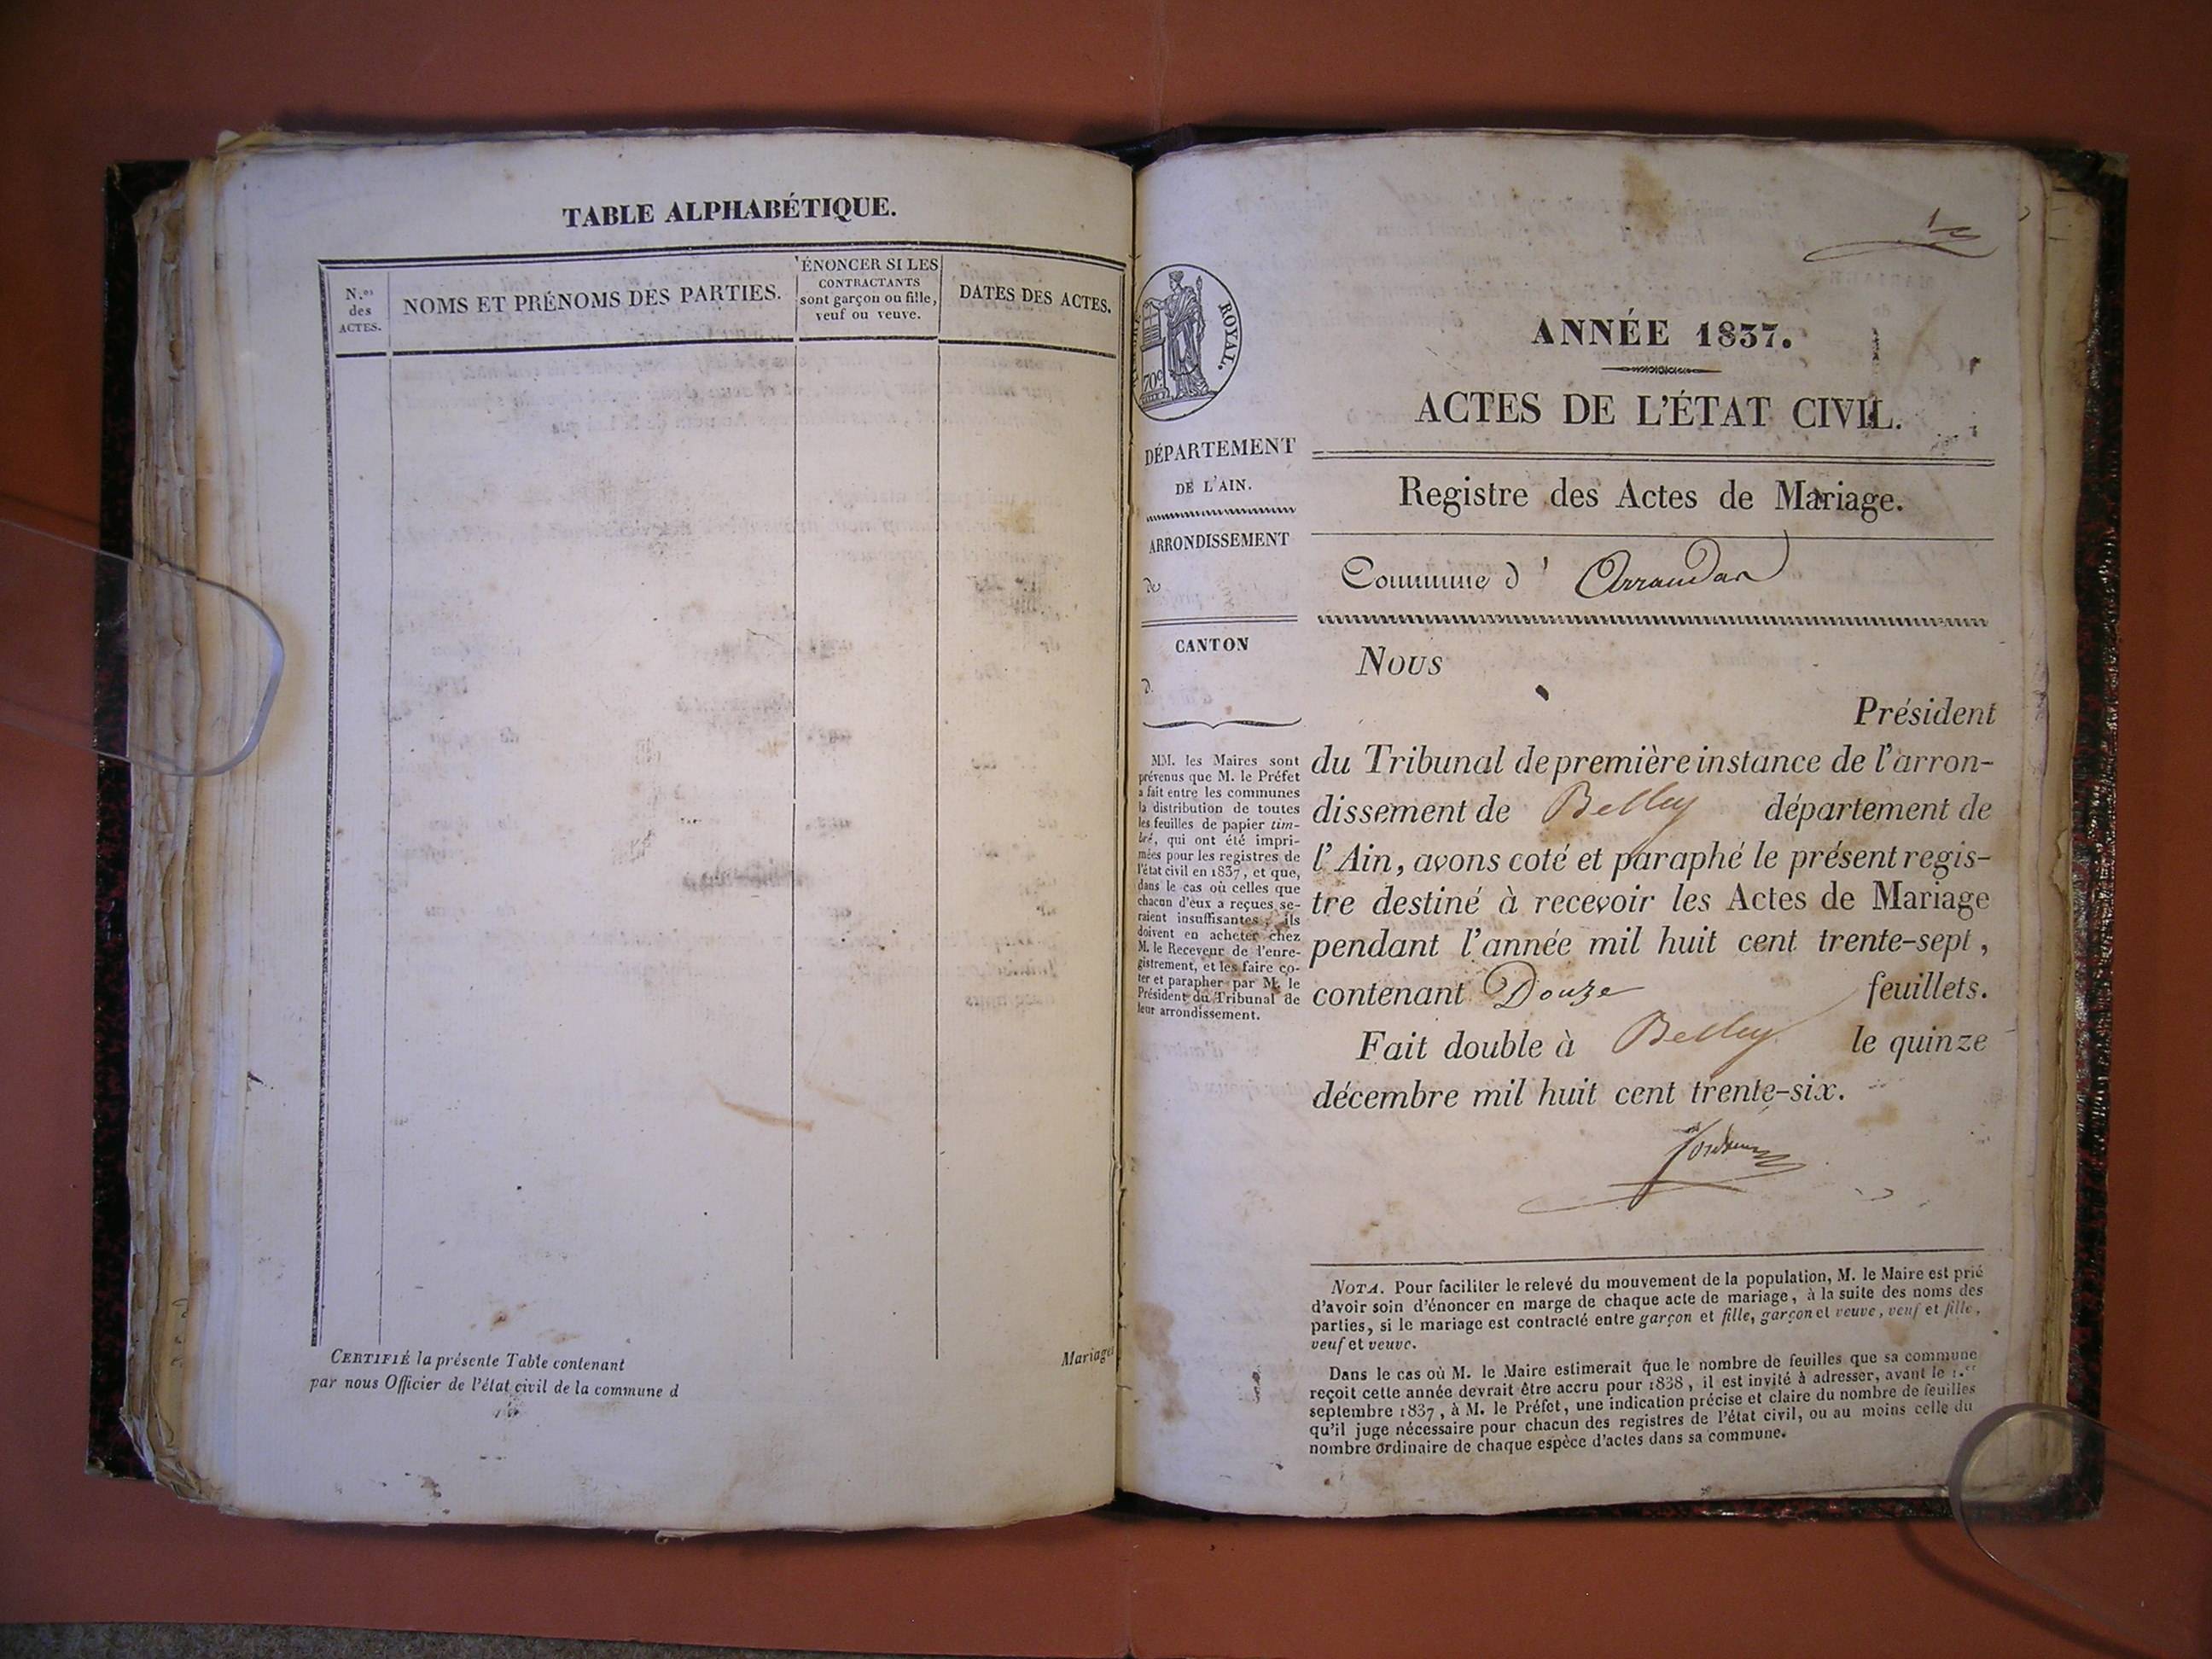 TABLE ALPHABÉTIQUE.
N.os
des
ACTES.
NOMS ET PRÉNOMS DES PARTIES.
ÉNONCER SI LES
CONTRACTANTS
sont garçon ou fille,
veuf ou veuve.
DATES DES ACTES.
CERTIFIÉ la présente Table contenant Mariages
par nous Officier de l'état civil de la commune d
ROYAL.
70c
DÉPARTEMENT
DE L'AIN.
ARRONDISSEMENT
de
CANTON
d
MM. les Maires sont
prévenus que M. le Préfet
a fait entre les communes
la distribution de toutes
les feuilles de papier tim-
bré, qui ont été impri-
mées pour les registres de
l'état civil en 1837, et que,
dans le cas où celles que
chacun d'eux a reçues se-
raient insuffisantes, ils
doivent en acheter chez
M. le Receveur de l'enre-
gistrement, et les faire co-
ter et parapher par M. le
Président du Tribunal de
leur arrondissement.
ANNÉE 1837.
ACTES DE L'ÉTAT CIVIL.
Registre des Actes de Mariage.
Commune d' Arrandas
Nous
Président
du Tribunal de première instance de l'arron-
dissement de Belley département de
l'Ain, avons coté et paraphé le présent regis-
tre destiné à recevoir les Actes de Mariage
pendant l'année mil huit cent trente-sept,
contenant Douze feuillets.
Fait double à Belley le quinze
décembre mil huit cent trente-six.
NOTA. Pour faciliter le relevé du mouvement de la population, M. le Maire est prié
d'avoir soin d'énoncer en marge de chaque acte de mariage, à la suite des noms des
parties, si le mariage est contracté entre garçon et fille, garçon et veuve, veuf et fille,
veuf et veuve.
Dans le cas où M. le Maire estimerait que le nombre de feuilles que sa commune
reçoit cette année devrait être accru pour 1838, il est invité à adresser, avant le 1.er
septembre 1837, à M. le Préfet, une indication précise et claire du nombre de feuilles
qu'il juge nécessaire pour chacun des registres de l'état civil, ou au moins celle du
nombre ordinaire de chaque espèce d'actes dans sa commune.